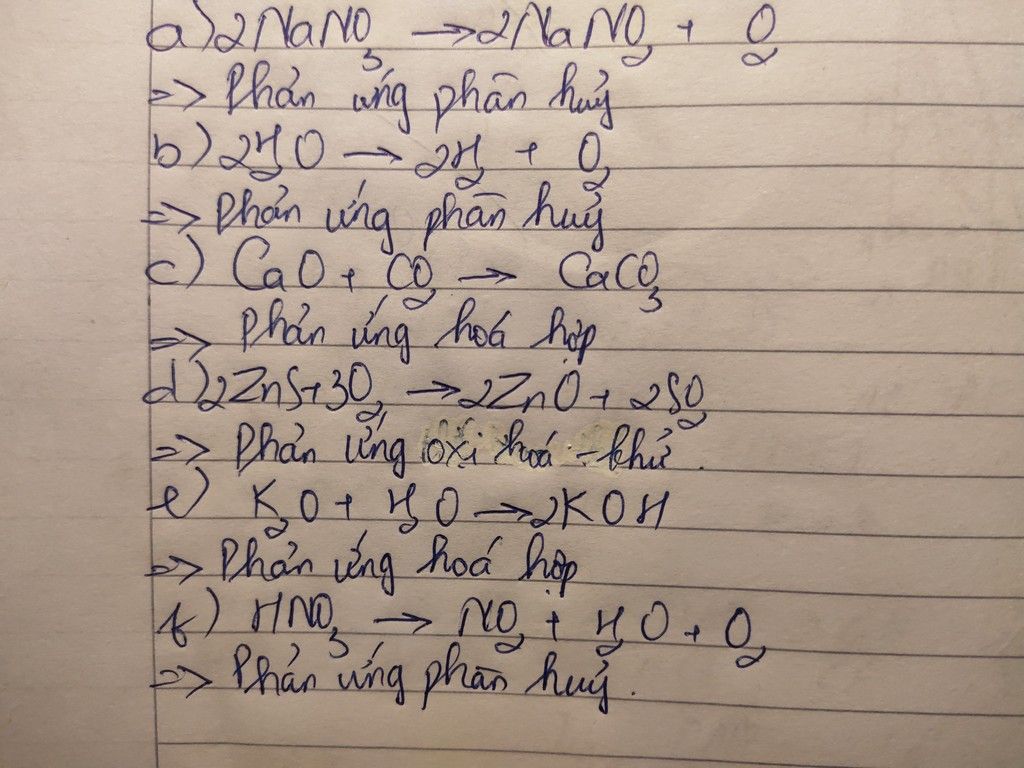 a) 2NaNO₃ → 2NaNO₂ + O₂
=> Phản ứng phân huỷ
b) 2H₂O → 2H₂ + O₂
=> Phản ứng phân huỷ
c) CaO + CO₂ → CaCO₃
=> Phản ứng hoá hợp
d) 2ZnS + 3O₂ → 2ZnO + 2SO₂
=> Phản ứng oxi hoá - khử.
e) K₂O + H₂O → 2KOH
=> Phản ứng hoá hợp
f) HNO₃ → NO₂ + H₂O + O₂
=> Phản ứng phân huỷ.